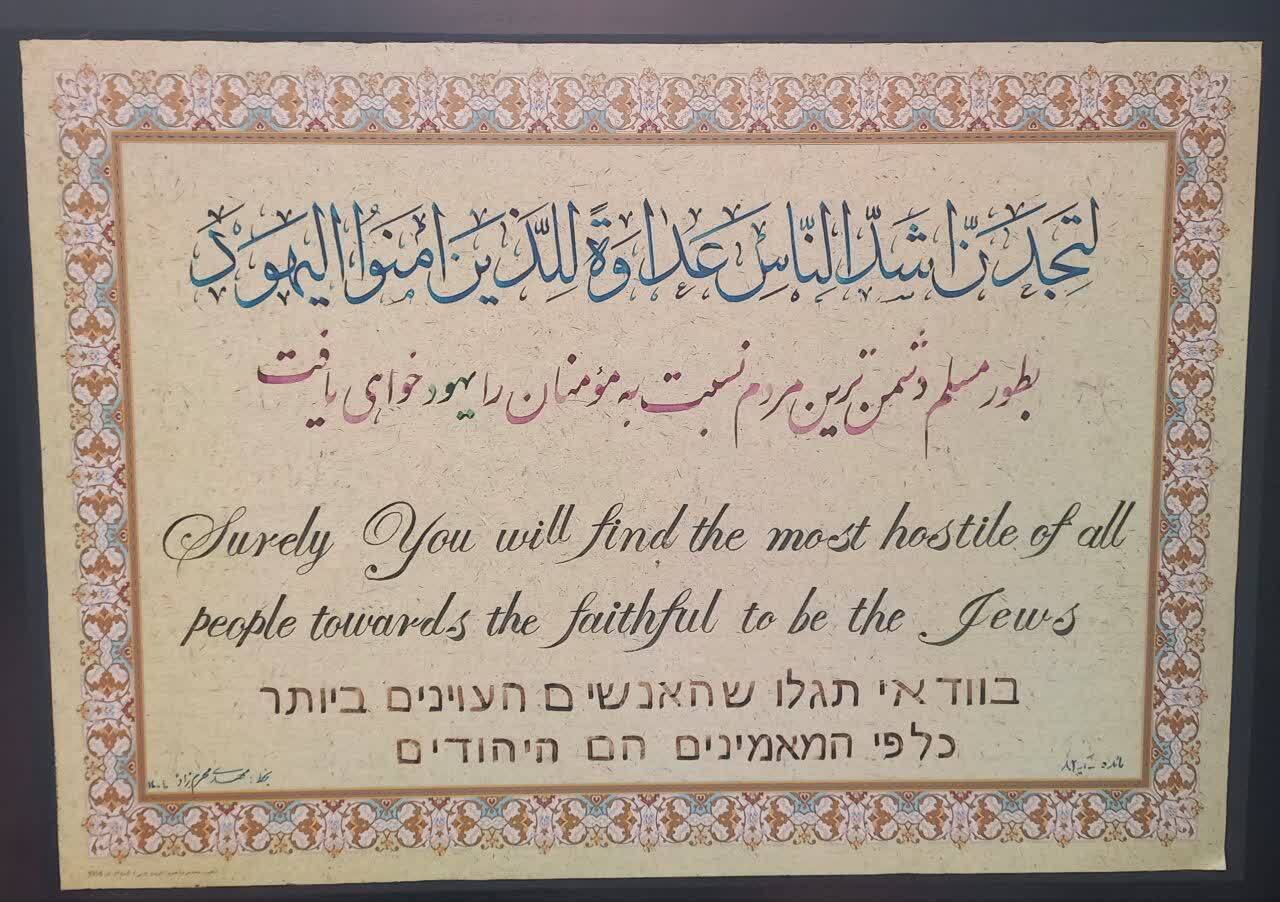 لَتَجِدَنَّ اَشَدَّ النّاسِ عَدٰاوَةً لِلَّذینَ اٰمَنُوا الیَهوَدَ
بطور مسلم دشمن ترین مردم نسبت به مؤمنان را یهود خواهی یافت
Surely You will find the most hostile of all
people towards the faithful to be the Jews
בוודאי תגלו שהאנשים העוינים ביותר
כלפי המאמינים הם היהודים
مائده - آیه ۸۲
بخط: